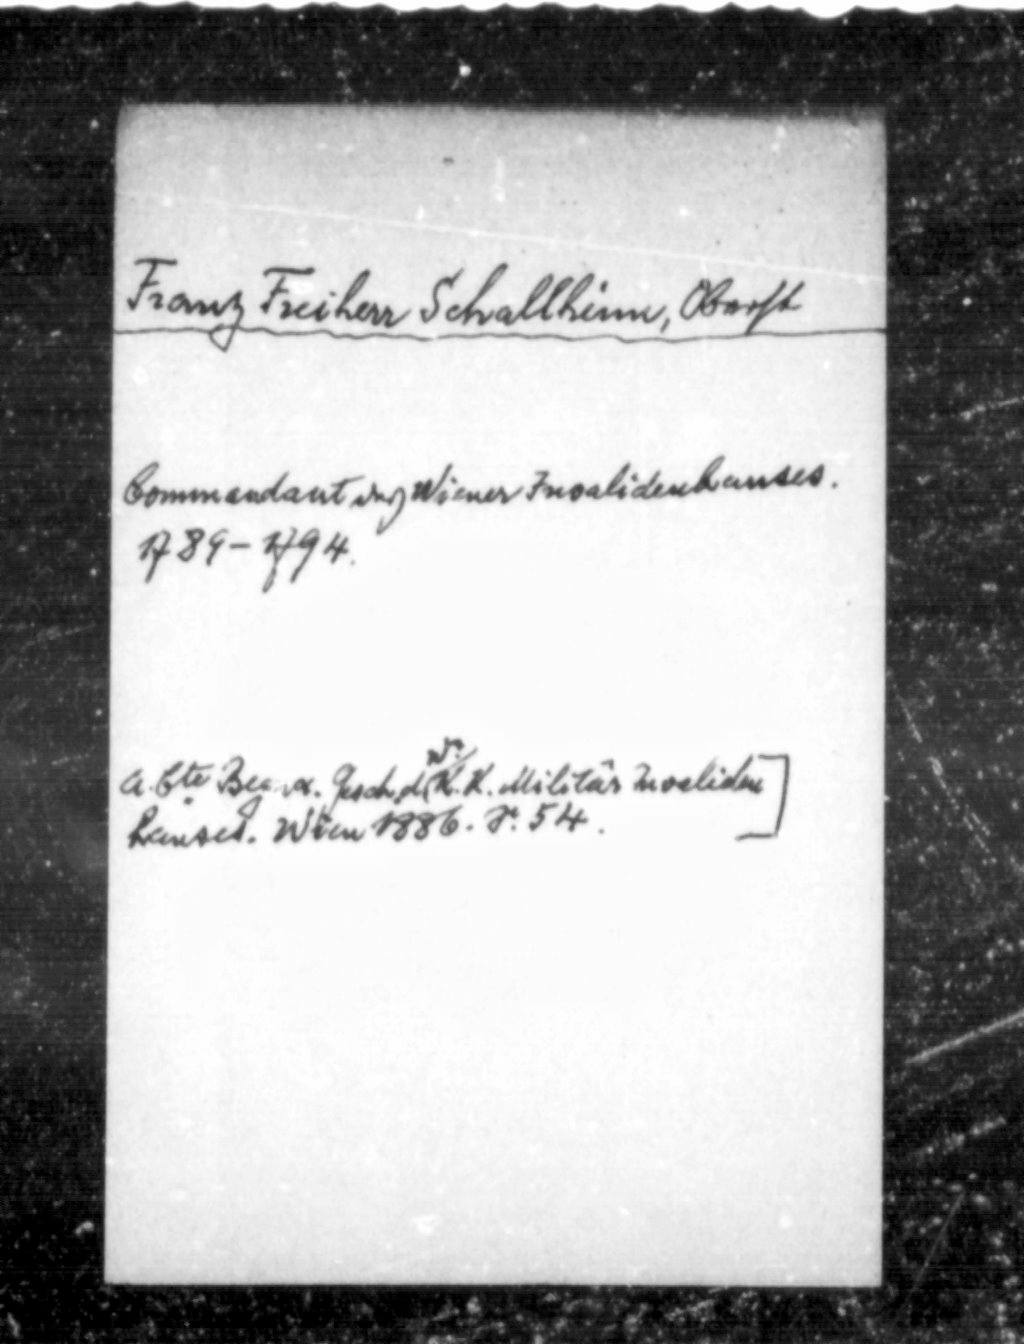 Franz Freiherr Schallheim, Oberst
Commandant des Wiener Invalidenhauses.
1789-1794.
Wr.
Beg. u. Gesch. d. K. K. Militär Invaliden
hauses. Wien 1886. S. 54.